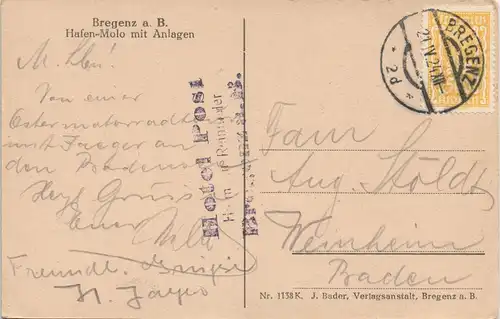 Bregenz a. B.
Hafen-Molo mit Anlagen
M. Lbn!
Von einer
Ostermotorradt
mit Jaeger an
den Bodens
Herzl Grüss
Euer
Freundl. Grüsse
H.
Hotel Post
BREGENZ
21.IV.24.XII
* 2d *
Fam
Aug. Stöldt
Weinheim
Baden
Nr. 1138 K. J. Bader, Verlagsanstalt, Bregenz a. B.